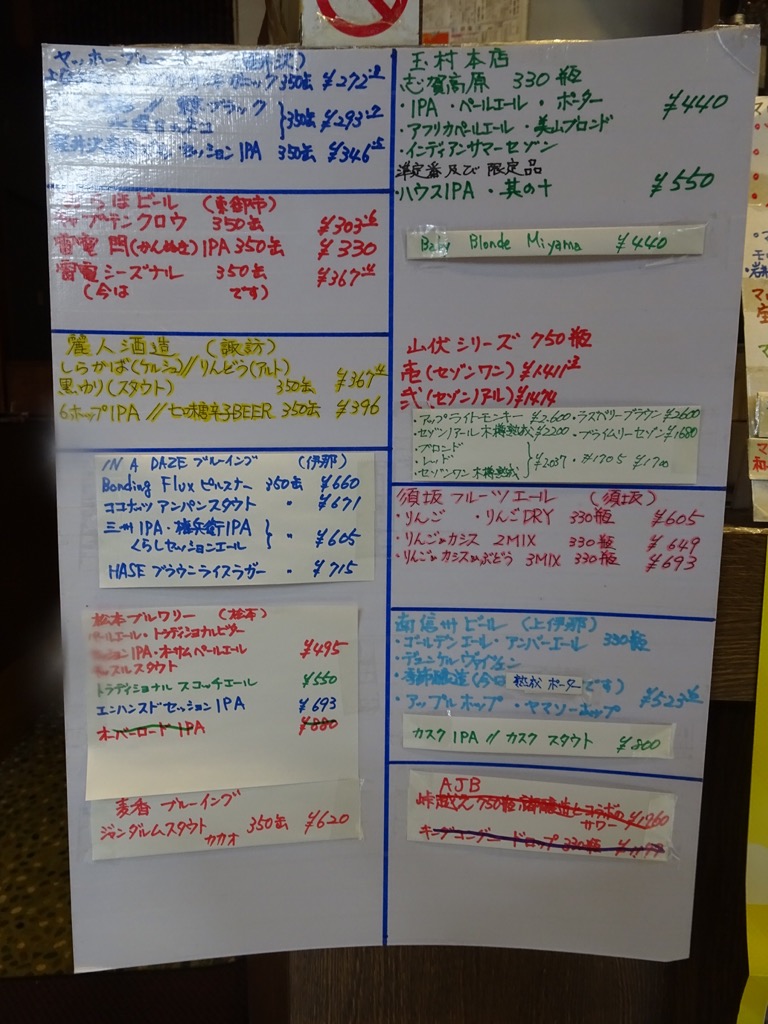 ヤッホーブルー
350缶 ¥272
ブラック
350缶 ¥293
軽井沢 セッションIPA 350缶 ¥346
ビール (東御市)
キャプテンクロウ 350缶 ¥303
雷電 閂(かんぬき)IPA 350缶 ¥330
雷電シーズナル 350缶 ¥367
(今は です)
麗人酒造 (諏訪)
しらかば(ケルシュ)//りんどう(アルト)
黒ゆり(スタウト) 350缶 ¥367
6ホップIPA // 七味唐辛子BEER 350缶 ¥396
IN A DAZE ブルーイング (伊那)
Bonding Flux ピルスナー 350缶 ¥660
ココナッツ アンパンスタウト 〃 ¥671
三州IPA・権兵衛IPA
くらしセッションエール 〃 ¥605
HASE ブラウンライスラガー 〃 ¥715
松本ブルワリー (松本)
ペールエール・トラディショナルビター
ションIPA・オサムペールエール ¥495
ッスルスタウト
トラディショナル スコッチエール ¥550
エンハンスドセッションIPA ¥693
オーバーロードIPA ¥880
麦香 ブルーイング
ジャンダルムスタウト 350缶 ¥620
カカオ
玉村本店
志賀高原 330瓶
・IPA・ペールエール・ポーター ¥440
・アフリカペールエール・美山ブロンド
・インディアンサマーセゾン
準定番及び限定品
・ハウスIPA・其の十 ¥550
Baby Blonde Miyama ¥440
山伏シリーズ 750瓶
壱(セゾンワン)¥1411
弐(セゾンノアル)¥1474
・アップライトモンキー ¥2,600・ラズベリーブラウン ¥2600
・セゾンノアール木樽熟成 ¥2200・プライムリーセゾン ¥1680
・ブロンド
・レッド ¥2037
・セゾンワン木樽熟成
須坂フルーツエール (須坂)
・りんご ・りんごDRY 330瓶 ¥605
・りんご×カシス 2MIX 330瓶 ¥649
・りんご×カシス×ぶどう 3MIX 330瓶 ¥693
南信州ビール (上伊那)
・ゴールデンエール・アンバーエール 330瓶
・デュンケルヴァイツェン
・季節醸造(今は 熟成 ポーター です) ¥523
・アップルホップ・ヤマソーホップ
カスクIPA // カスク スタウト ¥800
AJB
峠越え 750瓶 ¥1,760
サワー
キングコングニードロップ 330瓶